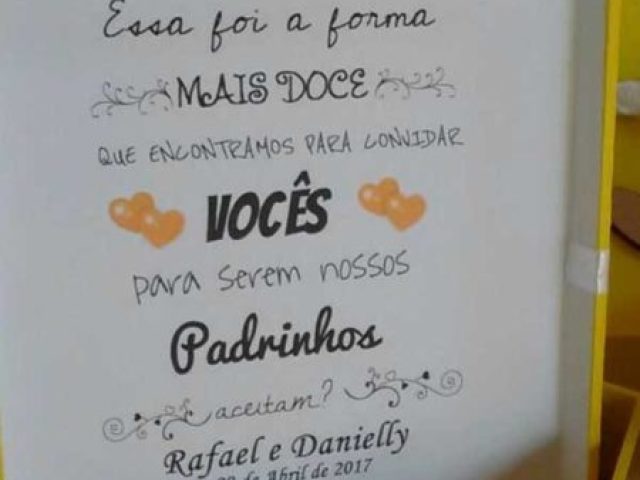 Essa foi a forma
MAIS DOCE
QUE ENCONTRAMOS PARA CONVIDAR
VOCÊS
para serem nossos
Padrinhos
aceitam?
Rafael e Danielly
de Abril de 2017